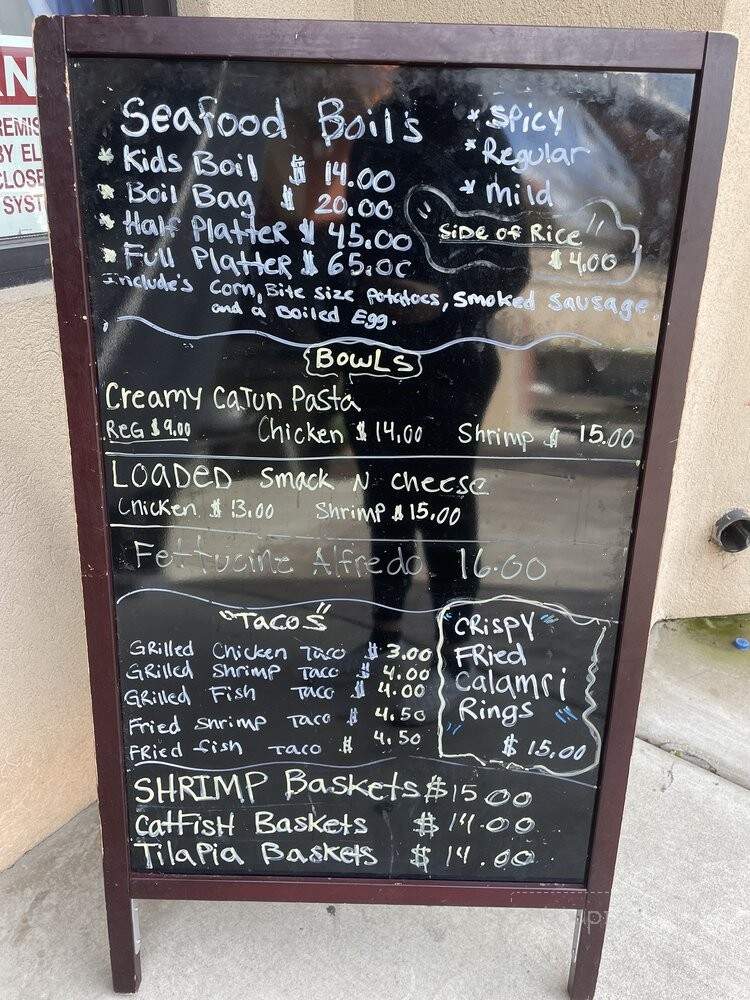 Seafood Boil's
* Kids Boil $ 14.00
* Boil Bag $ 20.00
* Half Platter $ 45.00
* Full Platter $ 65.00
* Spicy
* Regular
* Mild
Side of Rice
$4.00
Include's Corn, Bite size Potatoes, Smoked Sausage
and a Boiled Egg.
BOWLS
Creamy Cajun Pasta
REG $9.00 Chicken $ 14.00 Shrimp $ 15.00
LOADED Smack N Cheese
Chicken $ 13.00 Shrimp $ 15.00
Fettucine Alfredo 16.00
"TACOS"
GRilled Chicken Taco $ 3.00
GRilled Shrimp Taco $ 4.00
GRilled Fish Taco $ 4.00
Fried Shrimp Taco $ 4.50
FRied fish Taco $ 4.50
"CRispy"
FRied
Calamri
Rings
$ 15.00
SHRIMP Baskets $15.00
CatFisH Baskets $ 14.00
Tilapia Baskets $ 14.00
REMIS
BY EL
CLOSE
SYST